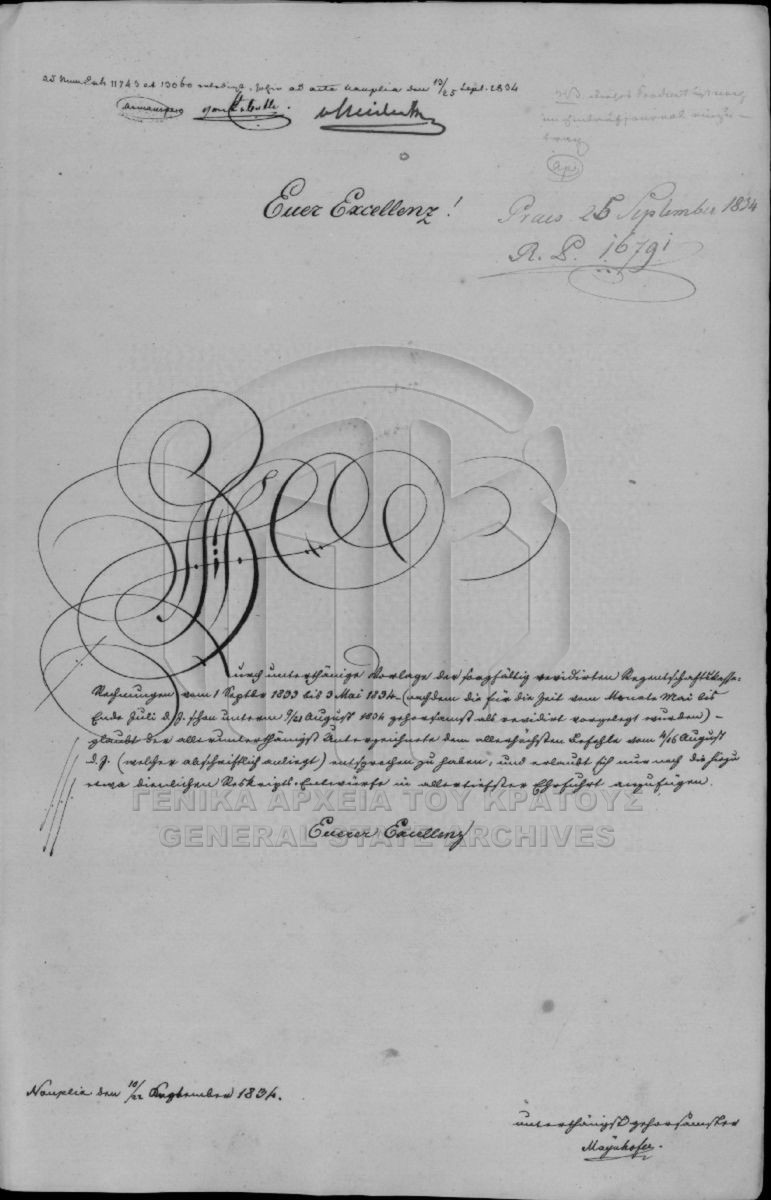 ad Num Prot. 11743 et 13060 erledigt. ad acta Nauplia den 13/25 Sept. 1834
Euer Excellenz!
Praes. 25 September 1834
R. P. 16791
Durch unterthänige Vorlage der sorgfältig revidirten Regentschaftskasse-
Rechnungen vom 1 Septbr 1833 bis 3 Mai 1834 (nachdem die für die Zeit vom Monate Mai bis
Ende Juli d. J. schon unterm 9/21 August 1834 gehorsamst als revidirt vorgelegt wurden) –
glaubt der allerunterthänigst Unterzeichnete dem allerhöchsten Befehle vom 4/16 August
d. J. (welcher abschriftlich anliegt) entsprochen zu haben, und erlaubt sich nur noch die hiezu
etwa dienlichen Reskripts-Entwürfe in allertiefster Ehrfurcht anzufügen.
ΓΕΝΙΚΑ ΑΡΧΕΙΑ ΤΟΥ ΚΡΑΤΟΥΣ
GENERAL STATE ARCHIVES
Euerer Excellenz
Nauplia den 10/22 September 1834.
unterthänigst gehorsamster
Mayrhofer.